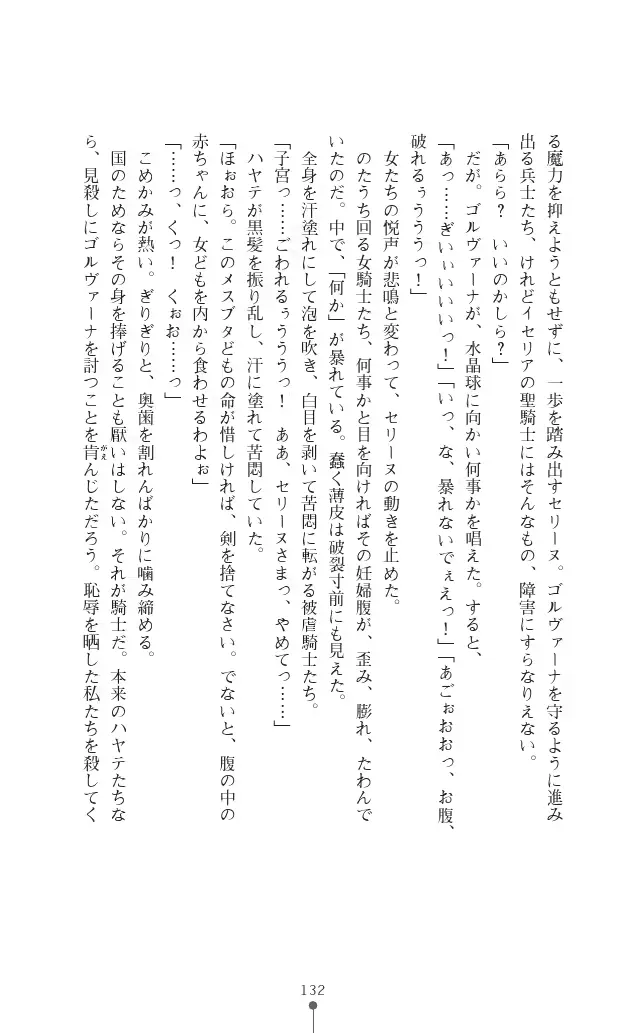 る魔力を抑えようともせずに、一歩を踏み出すセリーヌ。ゴルヴァーナを守るように進み
出る兵士たち、けれどイセリアの聖騎士にはそんなもの、障害にすらなりえない。
「あらら？　いいのかしら？」
だが。ゴルヴァーナが、水晶球に向かい何事かを唱えた。すると、
「あっ……ぎいぃぃいいいっ！」「いっ、な、暴れないでぇえっ！」「あごぉおおっ、お腹、
破れるぅうううっ！」
女たちの悦声が悲鳴と変わって、セリーヌの動きを止めた。
のたうち回る女騎士たち、何事かと目を向ければその妊婦腹が、歪み、膨れ、たわんで
いたのだ。中で、「何か」が暴れている。蠢く薄皮は破裂寸前にも見えた。
全身を汗塗れにして泡を吹き、白目を剥いて苦悶に転がる被虐騎士たち。
「子宮っ……ごわれるぅうううっ！　ああ、セリーヌさまっ、やめてっ……」
ハヤテが黒髪を振り乱し、汗に塗れて苦悶していた。
「ほぉおら。このメスブタどもの命が惜しければ、剣を捨てなさい。でないと、腹の中の
赤ちゃんに、女どもを内から食わせるわよぉ」
「……っ、くっ！　くぉお……っ」
こめかみが熱い。ぎりぎりと、奥歯を割れんばかりに噛み締める。
国のためならその身を捧げることも厭いはしない。それが騎士だ。本来のハヤテたちな
ら、見殺しにゴルヴァーナを討つことを肯んじただろう。恥辱を晒した私たちを殺してく
がえ
132